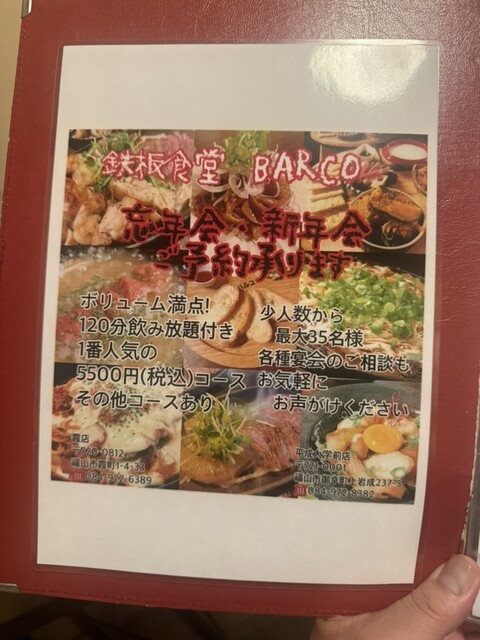 鉄板食堂 BARCO
忘年会・新年会
ご予約承ります
ボリューム満点!
120分飲み放題付き
1番人気の
5500円(税込)コース
その他コースあり
少人数から
最大35名様
各種宴会のご相談も
お気軽に
お声がけください
霞店
〒720-0812
福山市霞町1-4-33
平成大学前店
〒721-0001
福山市御幸町上岩成237-3
084-972-8382